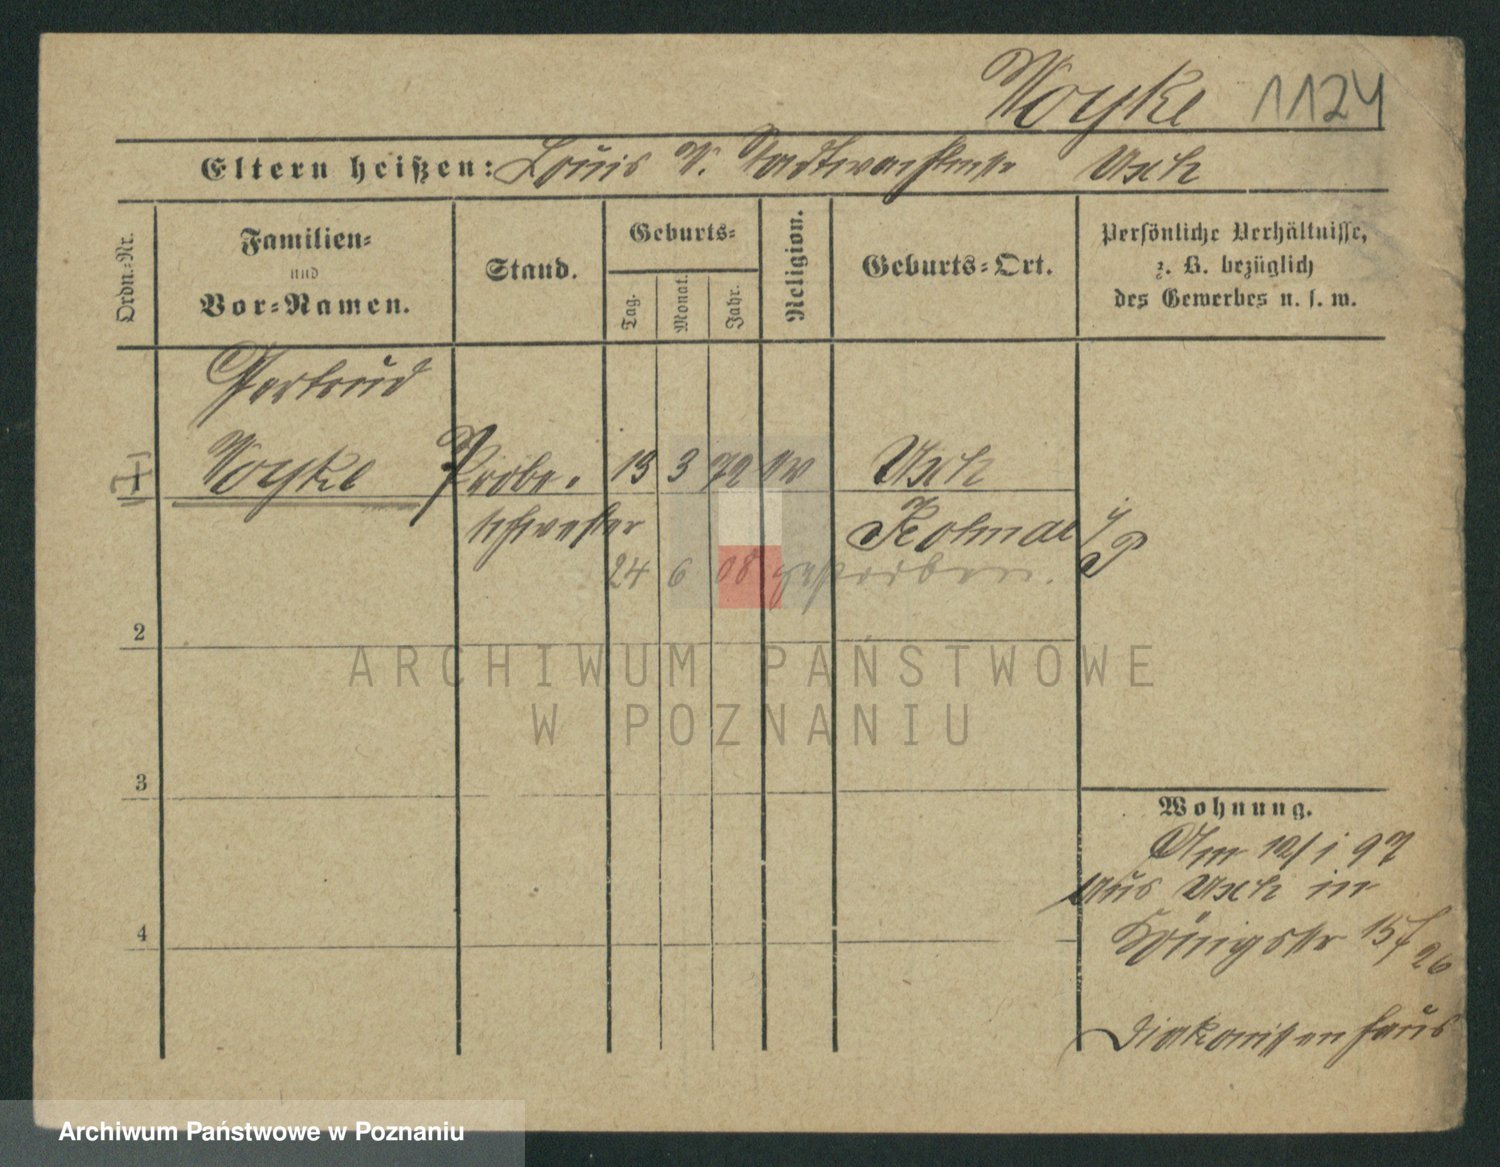 Woyke 1124
Eltern heißen: Louis W. Stadtwachtmstr Usch
Ordn.-Nr.
Familien-
und
Vor-Namen.
Stand.
Geburts-
Tag.
Monat.
Jahr.
Religion.
Geburts-Ort.
Persönliche Verhältnisse,
z. B. bezüglich
des Gewerbes u. s. w.
Gertrud
Woyke Probe- 13 3 72 ev Usch
schwester Kolmar i/P
24 6 08 gestorben.
2
3
4
Wohnung.
Am 12/1 97
aus Usch in
Königstr 15/
26
Diakonissenhaus
ARCHIWUM PAŃSTWOWE
W POZNANIU
Archiwum Państwowe w Poznaniu